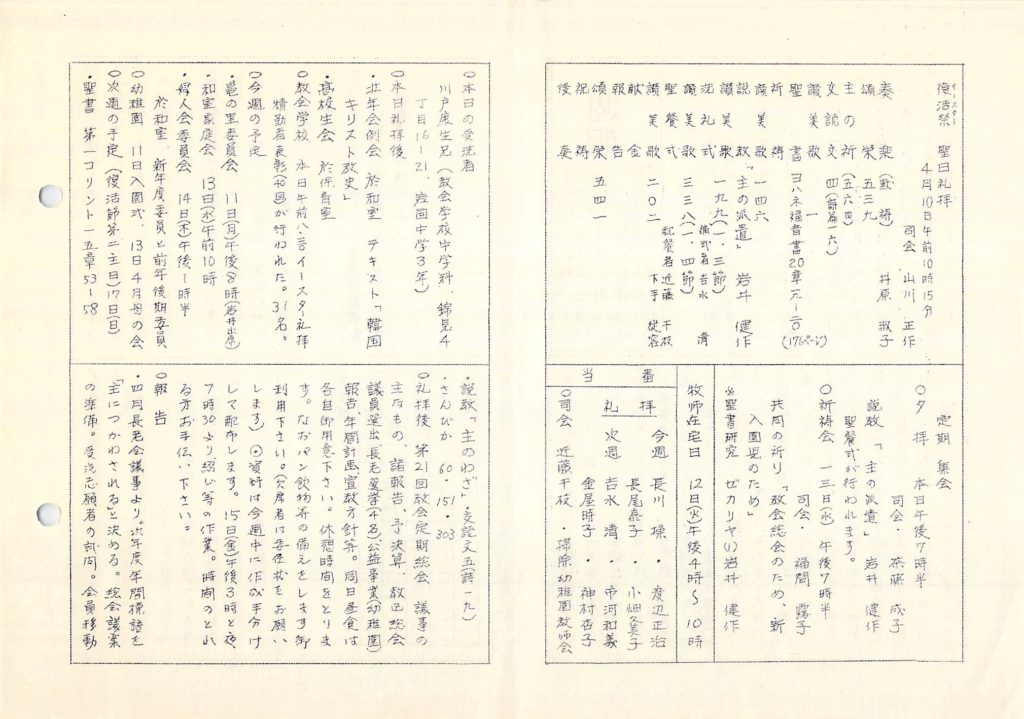 イースター
復活祭 聖日礼拝
4月10日午前10時15分
司会 山川 正作
奏楽(黙祷) 井原 淑子
頌栄 五三九
主の祈(五六四)
交読文 四(詩篇一六)
讃美歌 一
聖書 ヨハネ福音書20章一九-二〇
(176ページ)
祈祷
讃美歌 一四六
説教 「主の派遣」 岩井 健作
讃美歌 一九九(一、三節)
洗礼式 清
讃美歌 三三八(一、四節)
聖餐式 配餐者 近藤 千枝
讃美歌 二〇二
献金
報告
頌栄 五四一
祝祷
後奏
定期集会
○夕拝 本日午後7時半
司会 斎藤 成子
説教 「主の派遣」 岩井 健作
聖餐式が行われます。
○祈祷会 一三日(水) 午後7時半
司会 福間 霧子
共同の祈り 「教会総会のため、新
入園児のため」
※聖書研究 ゼカリヤ(1) 岩井 健作
牧師在宅日 12日(火)午後4時~10時
当番
礼拝
今週 長川 操 ・ 渡辺正治
長尾泰子 ・ 小畑冬美子
次週 吉永 清 ・ 市河和義
金屋時子 ・ 神村杏子
○司会 近藤千枝 ・掃除 幼稚園教師会
○本日の受洗者
川戸度生兄(教会学校中学科、錦見4
丁目16-21、岩国中学3年)
○本日礼拝後
・壮年会例会 於和室 テキスト「韓国
キリスト教史」
・高校生会 於保育室
○教会学校 本日午前八:三〇イースター礼拝
精勤者表彰(40回)が行われた。31名。
○今週の予定
・恵の里委員会 11日(月)午後8時(岩井出席)
・和室家庭会 13日(水)午前10時
・婦人会委員会 14日(木)午後1時半
於和室、新年度委員と前年後期委員
○幼稚園 11日入園式、13日4月母の会
○次週の予定(復活節第二主日)17日(日)
・聖書 第一コリント一五章53-58
・説教「主のわざ」交読文五(詩一九)
・さんびか 60・151・303
○礼拝後 第21回教会定期総会 議事の
主なもの、諸報告、予決算、教区総会
議員選出、長老選挙(4名)公益事業(幼稚園)
報告、年間計画、宣教方針等。同日昼食は
各自御用意下さい。休憩時間をとりま
す。なおパン飲物等の備えをします御
利用下さい。(欠席者は委任状をお願い
します) ⊙資料は今週中に作成手分け
して配布します。15日(金)午後3時と夜
7時30より綴じ等の作業。時間のとれ
る方お手伝い下さい。
○報告
・四月長老会議事より。次年度年間標語を
「主につかわされる」と決める。総会議案
の準備。受洗志願者の試問。会員移動